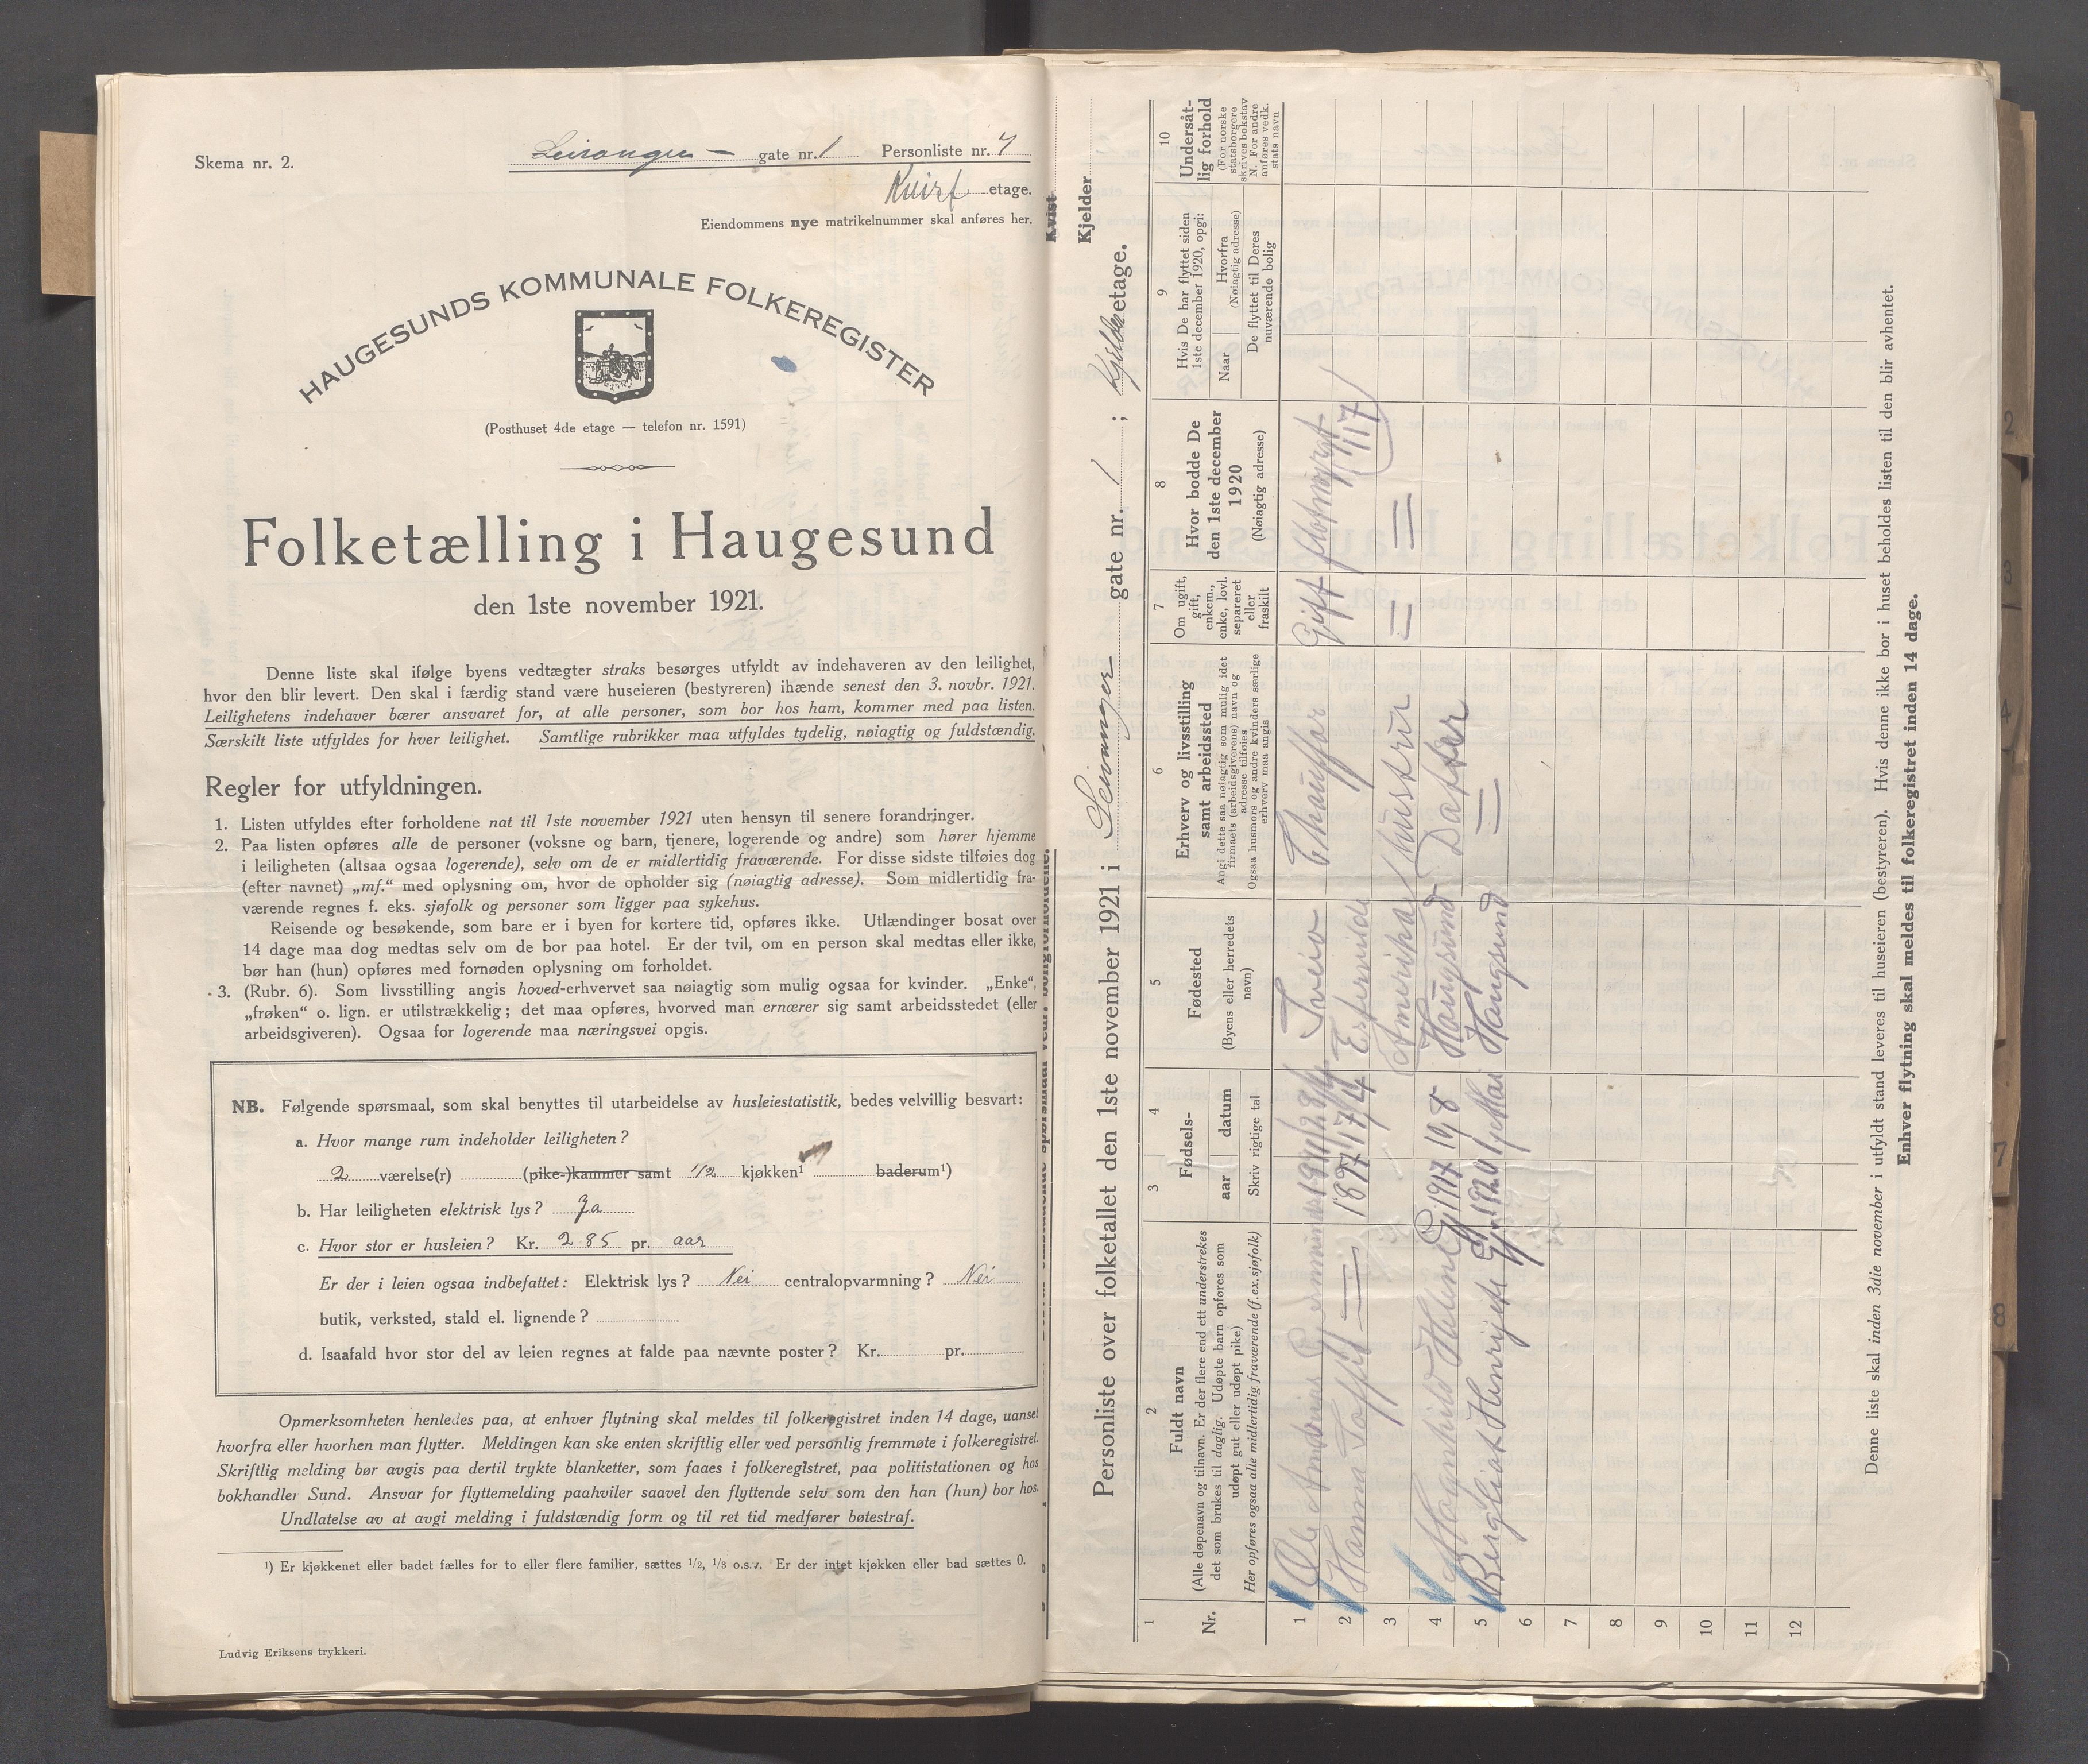 Skema nr. 2.
Leiranger - gate nr. 1 Personliste nr. 7
Kvist etage.
Eiendommens nye matrikelnummer skal anføres her.
HAUGESUNDS KOMMUNALE FOLKEREGISTER
(Posthuset 4de etage — telefon nr. 1591)
Folketælling i Haugesund
den 1ste november 1921.
Denne liste skal ifølge byens vedtægter straks besørges utfyldt av indehaveren av den leilighet,
hvor den blir levert. Den skal i færdig stand være huseieren (bestyreren) ihænde senest den 3. novbr. 1921.
Leilighetens indehaver bærer ansvaret for, at alle personer, som bor hos ham, kommer med paa listen.
Særskilt liste utfyldes for hver leilighet. Samtlige rubrikker maa utfyldes tydelig, nøiagtig og fuldstændig.
Regler for utfyldningen.
1. Listen utfyldes efter forholdene nat til 1ste november 1921 uten hensyn til senere forandringer.
2. Paa listen opføres alle de personer (voksne og barn, tjenere, logerende og andre) som hører hjemme
i leiligheten (altsaa ogsaa logerende), selv om de er midlertidig fraværende. For disse sidste tilføies dog
(efter navnet) „mf.“ med oplysning om, hvor de opholder sig (nøiagtig adresse). Som midlertidig fra-
værende regnes f. eks. sjøfolk og personer som ligger paa sykehus.
Reisende og besøkende, som bare er i byen for kortere tid, opføres ikke. Utlændinger bosat over
14 dage maa dog medtas selv om de bor paa hotel. Er der tvil, om en person skal medtas eller ikke,
bør han (hun) opføres med fornøden oplysning om forholdet.
3. (Rubr. 6). Som livsstilling angis hoved-erhvervet saa nøiagtig som mulig ogsaa for kvinder. „Enke“,
„frøken“ o. lign. er utilstrækkelig; det maa opføres, hvorved man ernærer sig samt arbeidsstedet (eller
arbeidsgiveren). Ogsaa for logerende maa næringsvei opgis.
NB. Følgende spørsmaal, som skal benyttes til utarbeidelse av husleiestatistik, bedes velvillig besvart:
a. Hvor mange rum indeholder leiligheten?
2 værelse(r) (pike-)kammer samt 1/2 kjøkken¹ baderum¹)
b. Har leiligheten elektrisk lys? Ja
c. Hvor stor er husleien? Kr. 285 pr. aar
Er der i leien ogsaa indbefattet: Elektrisk lys? Nei centralopvarmning? Nei
butik, verksted, stald el. lignende?
d. Isaafald hvor stor del av leien regnes at falde paa nævnte poster? Kr. pr.
Opmerksomheten henledes paa, at enhver flytning skal meldes til folkeregistret inden 14 dage, uanset
hvorfra eller hvorhen man flytter. Meldingen kan ske enten skriftlig eller ved personlig fremmøte i folkeregistret.
Skriftlig melding bør avgis paa dertil trykte blanketter, som faaes i folkeregistret, paa politistationen og hos
bokhandler Sund. Ansvar for flyttemelding paahviler saavel den flyttende selv som den han (hun) bor hos.
Undlatelse av at avgi melding i fuldstændig form og til ret tid medfører bøtestraf.
¹) Er kjøkkenet eller badet fælles for to eller flere familier, sættes 1/2, 1/3 o.s.v. Er der intet kjøkken eller bad sættes 0.
Ludvig Eriksens trykkeri.
Kvist
Kjelder
Personliste over folketallet den 1ste november 1921 i Leiranger gate nr. 1 ; etage.
1 2 3 4 5 6 7 8 9 10
Nr.
Fuldt navn
(Alle døpenavn og tilnavn. Er der flere end ett understrekes
det som brukes til daglig. Udøpte barn opføres som
udøpt gut eller udøpt pike)
Her opføres ogsaa alle midlertidig fraværende (f.ex. sjøfolk)
Fødsels-
aar datum
Skriv rigtige tal
Fødested
(Byens eller herredets
navn)
Erhverv og livsstilling
samt arbeidssted
Angi dette saa nøiagtig som mulig idet
firmaets (arbeidsgiverens) navn og
adresse tilføies
Ogsaa husmors og andre kvinders særlige
erhverv maa angis
Om ugift,
gift,
enkem.,
enke, lovl.
separeret
eller
fraskilt
Hvor bodde De
den 1ste december
1920
(Nøiagtig adresse)
Hvis De har flyttet siden
1ste december 1920, opgi:
Naar
Hvorfra
(Nøiagtig adresse)
De flyttet til Deres
nuværende bolig
Undersåt-
lig forhold
(For norske
statsborgere
skrives bokstav
N. For andre
anføres vedk.
stats navn
1 Ole Andreas Sveio Chauffør Gift
2 Hanna 1897 17/4 117
3 Amerika hustru
4 Magnhild 1917 Haugsund Datter
5 Bergliot Henriette 1920 Mai Haugsund
6
7
8
9
10
11
12
Denne liste skal inden 3die november i utfyldt stand leveres til huseieren (bestyreren). Hvis denne ikke bor i huset beholdes listen til den blir avhentet.
Enhver flytning skal meldes til folkeregistret inden 14 dage.